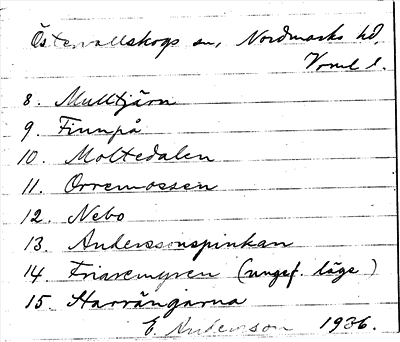 Östervallskogs sn, Nordmarks hd,
Vrml l.
8. Mulltjärn
9. Finnpå
10. Moltedalen
11. Orremossen
12. Nebo
13. Anderssonspinkan
14. Friaremyren (ungef. läge)
15. Harrängarna
E. Anderson 1936.